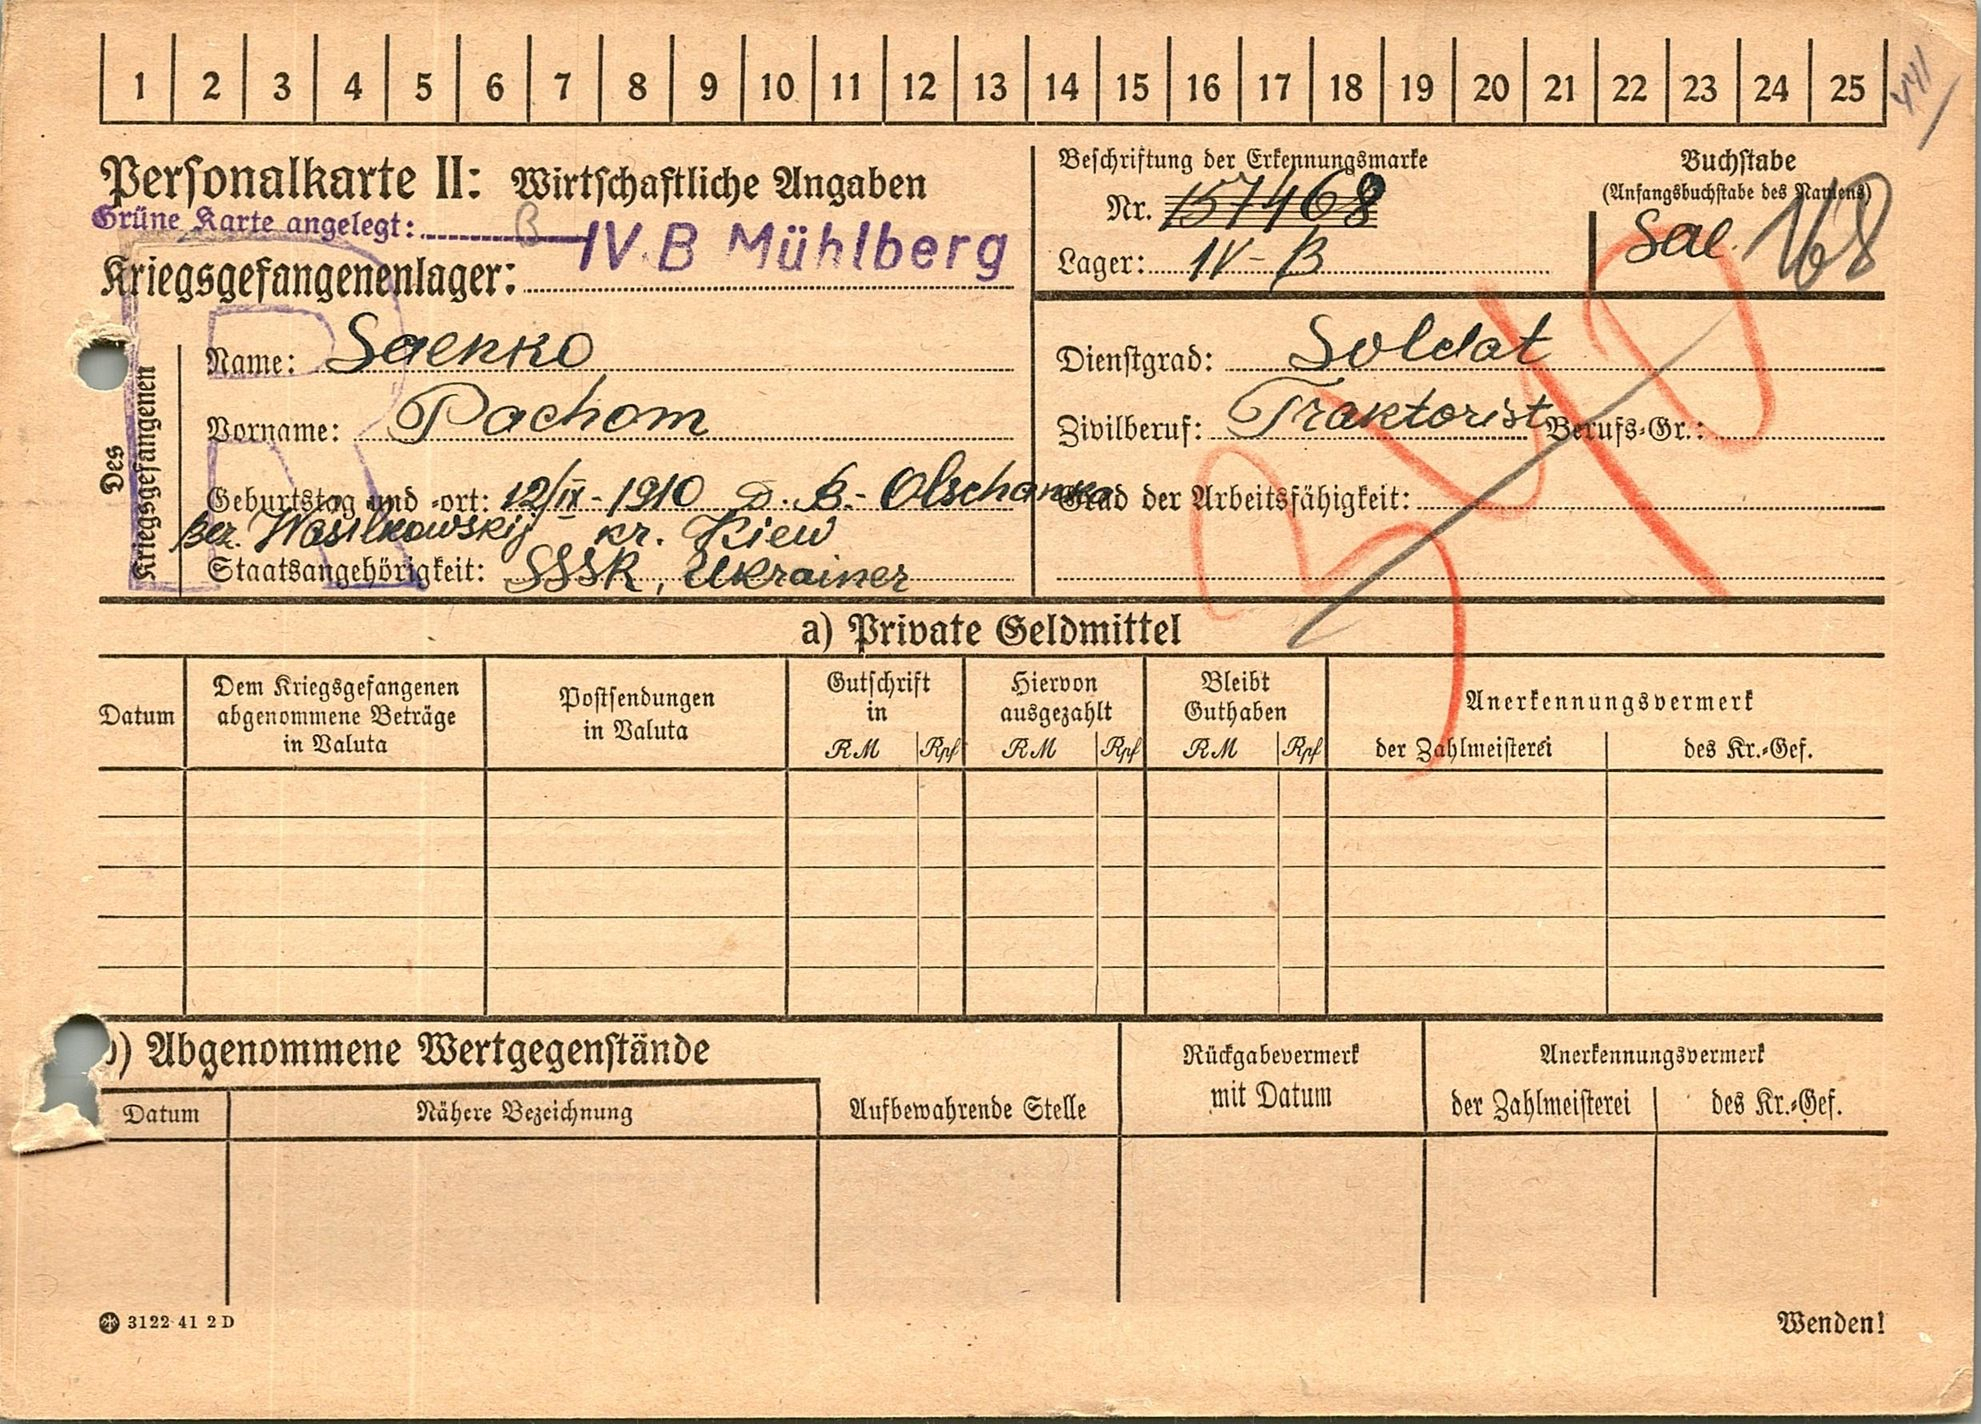 1 2 3 4 5 6 7 8 9 10 11 12 13 14 15 16 17 18 19 20 21 22 23 24 25
441
Personalkarte II: Wirtschaftliche Angaben
Grüne Karte angelegt:
Kriegsgefangenenlager: IV B Mühlberg
Beschriftung der Erkennungsmarke
Nr. 157468
Lager: IV-B
Buchstabe
(Anfangsbuchstabe des Namens)
Sae. 168
Des Kriegsgefangenen
R
Name: Saenko
Vorname: Pachom
Geburtstag und -ort: 12/IX-1910 D. B.-Olschanka
Ber. Wasilkowskij kr. Kiew
Staatsangehörigkeit: SSSR, Ukrainer
Dienstgrad: Soldat
Zivilberuf: Traktorist Berufs-Gr.:
Grad der Arbeitsfähigkeit:
340
a) Private Geldmittel
Datum
Dem Kriegsgefangenen abgenommene Beträge in Valuta
Postsendungen in Valuta
Gutschrift in
RM Rpf
Hiervon ausgezahlt
RM Rpf
Bleibt Guthaben
RM Rpf
Anerkennungsvermerk
der Zahlmeisterei des Kr.-Gef.
b) Abgenommene Wertgegenstände
Datum Nähere Bezeichnung
Aufbewahrende Stelle
Rückgabevermerk
mit Datum
Anerkennungsvermerk
der Zahlmeisterei des Kr.-Gef.
3122 41 2 D
Wenden!